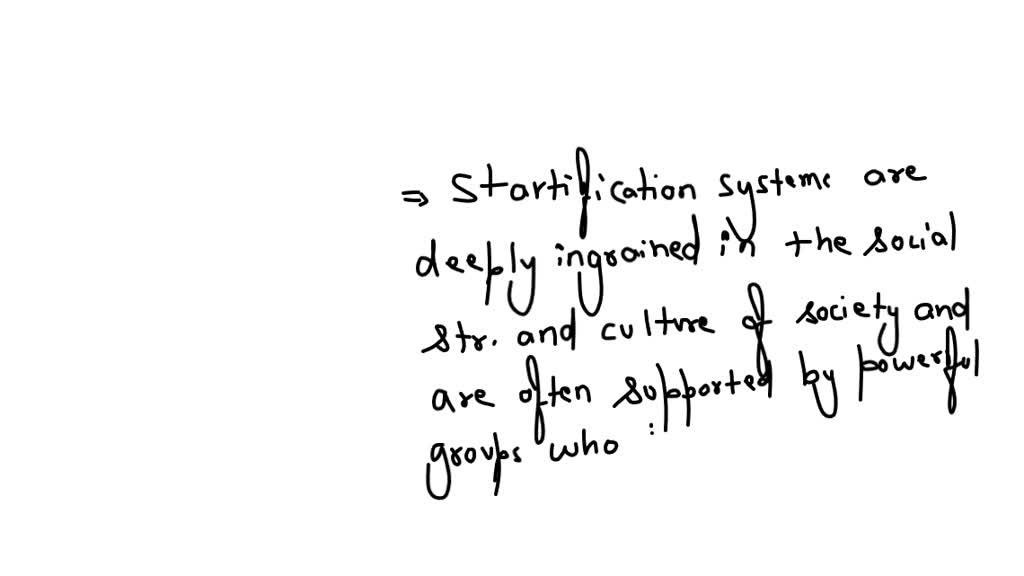 ⇒ Startification systems are
deeply ingrained in the social
str. and culture of society and
are often supported by powerful
groups who :